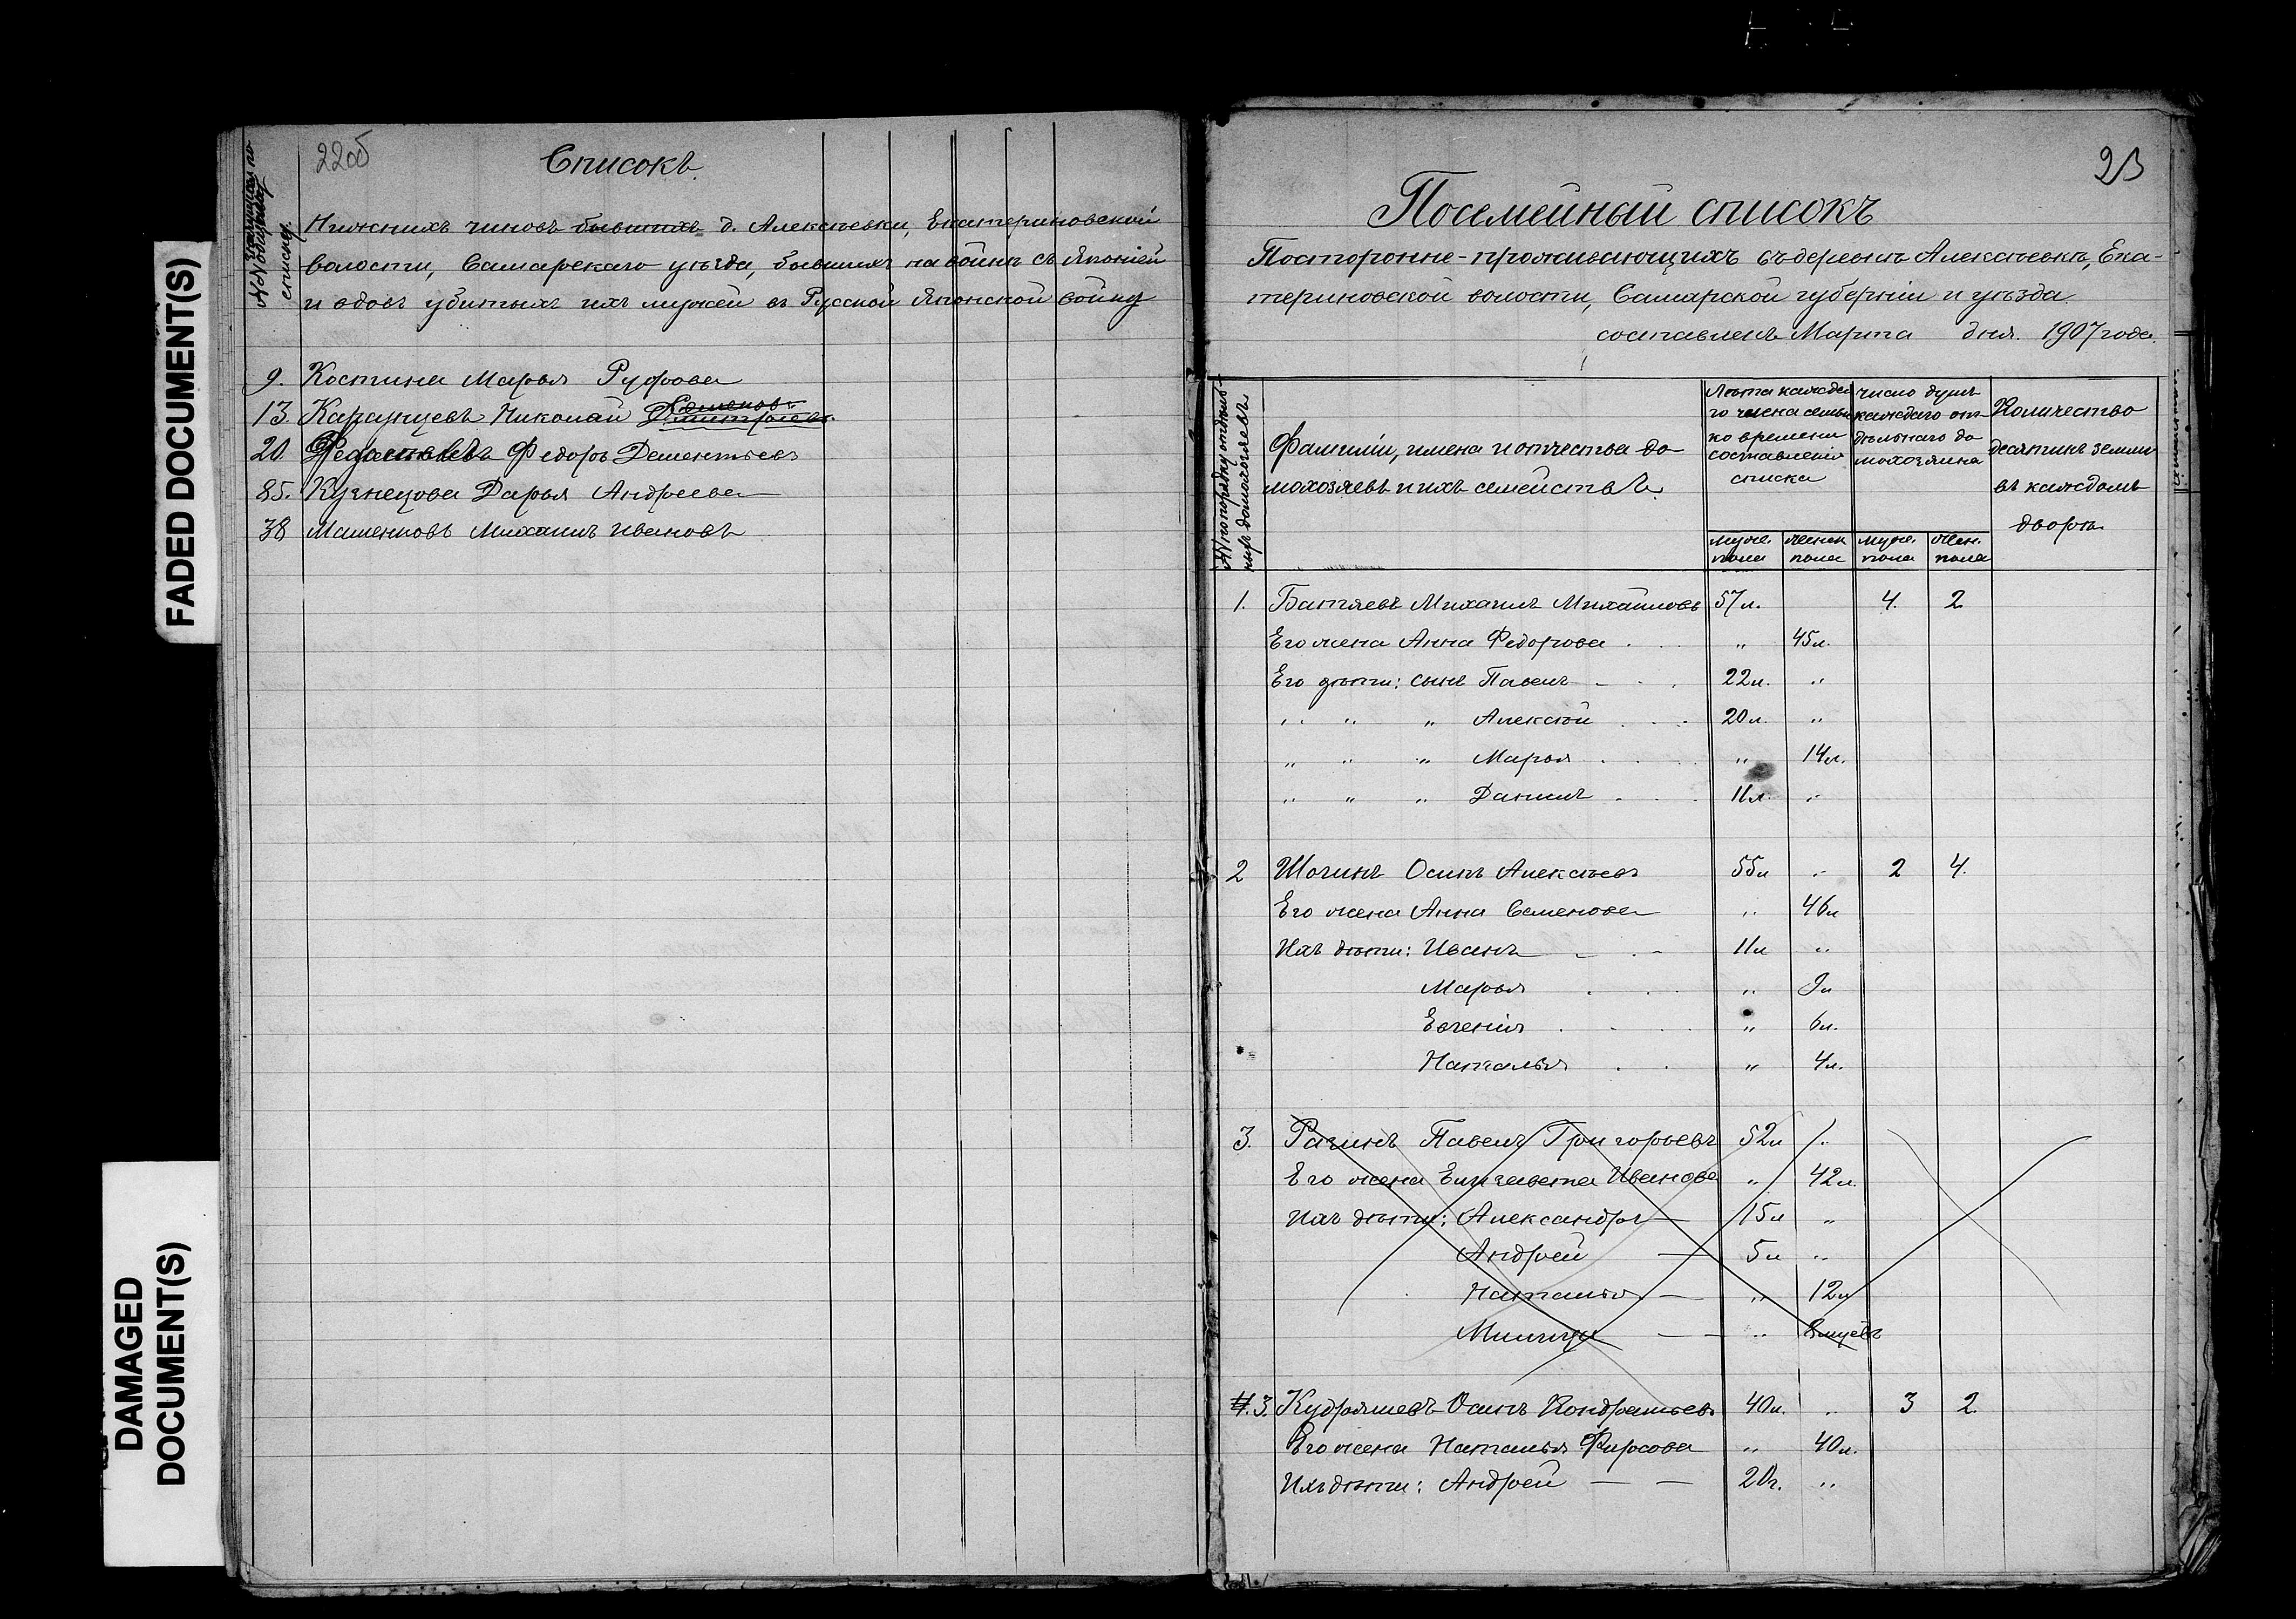 FADED DOCUMENT(S)
DAMAGED
DOCUMENT(S)
22об
Списокъ
№№ по общему
списку.
Нижнихъ чиновъ бывшихъ д. Алексѣевки, Екатериновской
волости, Самарскаго уѣзда, бывшихъ на войнѣ съ Японіей
и вдовъ убитыхъ ихъ мужей въ Русской Японской войну
9. Костина Марья Руфова
13. Карзунцевъ Николай Дмитріевъ
20. Федоръ Дементьевъ
85. Кузнецова Дарья Андреева
38 Машенковъ Михаилъ Ивановъ
23
Посемейный списокъ
Посторонне-проживающихъ въ деревнѣ Алексѣевкѣ, Ека-
териновской волости, Самарской губерніи и уѣзда
составленъ Марта дня. 1907 года.
№ по порядку отдѣль-
ныхъ домохозяевъ
Фамиліи, имена и отчества до-
мохозяевъ и ихъ семействъ.
Лѣта каждa-
го члена семьи
ко времени
составленія
списка
число душъ
каждаго от-
дѣльнаго до
мохозяина
Количество
десятинъ земли
въ каждомъ
дворѣ.
муже. пола
женск пола
муже. пола
жен. пола
1. Батяевъ Михаилъ Михайловъ 57 л. 4. 2
Его жена Анна Федорова . . „ 45 л.
Его дѣти: сынъ Павелъ - . . 22 л. „
„ „ „ Алексѣй . . . 20 л. „
„ „ „ Марья . . . „ 14 л.
„ „ „ Данилъ . . . 11 л. „
2 Шогинъ Осипъ Алексѣевъ 55 л „ 2 4.
Его жена Анна Семенова „ 46 л
Ихъ дѣти: Иванъ - . - 11 л „
Марья . . . „ 9 л
Евгенія . . . „ 6 л.
Наталья . . „ 4 л.
3. Рагинъ Павелъ Григорьевъ 52 л „
Его жена Елизавета Иванова „ 42 л.
Ихъ дѣти: Александръ — 15 л „
Андрей — 5 л „
Наталья — „ 12 л
— — „ 8 мцевъ
4. 3. Кудряшевъ Осипъ Кондратьевъ 40 л. „ 3 2.
Его жена Наталья Фирсова „ 40 л.
Ихъ дѣти: Андрей — — 20 г. „